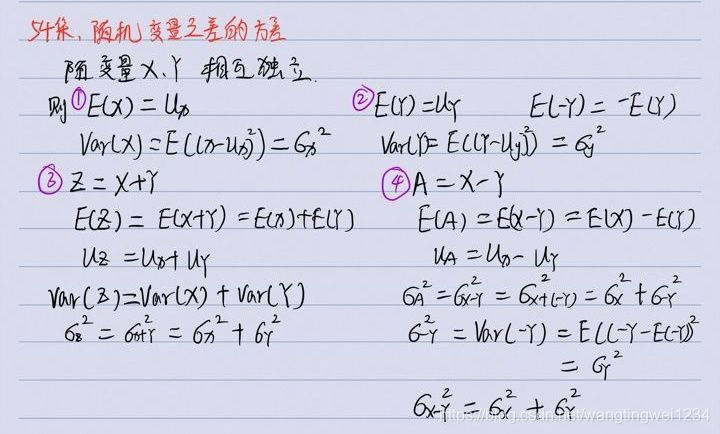 54集、随机变量之差的方差
随变量X、Y 相互独立.
则①E(X) = Ux
Var(X) = E((x-Ux)²) = 6x²
②E(Y) = UY E(-Y) = -E(Y)
Var(Y) = E((Y-Uy)²) = 6y²
③ Z = X+Y
E(Z) = E(X+Y) = E(x)+E(Y)
Uz = Ux+ UY
Var(Z)=Var(X) + Var(Y)
6z² = 6x+Y² = 6x² + 6Y²
④ A = X-Y
E(A) = E(X-Y) = E(X) - E(Y)
UA = Ux- UY
6A² = 6x-Y² = 6x+(-Y)² = 6x² + 6-Y²
6-Y² = Var(-Y) = E((-Y-E(-Y))²
= 6Y²
6x-Y² = 6x² + 6Y²
https://blog.csdn.net/wangtingwei1234